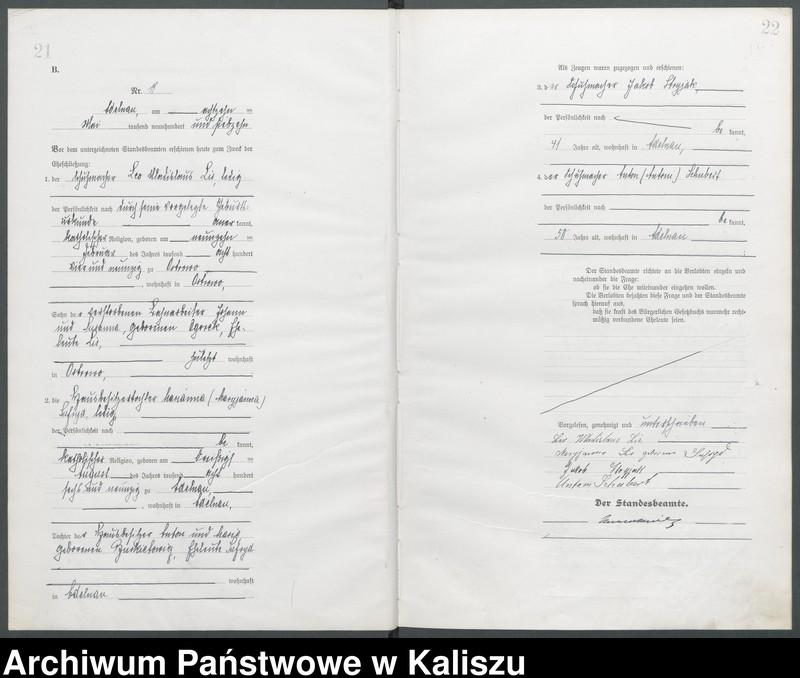 21
B.
Nr. 9
Adelnau, am achtzehn ten
Mai tausend neunhundert und siebzehn
Vor dem unterzeichneten Standesbeamten erschienen heute zum Zweck der
Eheschließung:
1. der Schuhmacher Leo Wladislaus Lis, ledig
der Persönlichkeit nach durch seine vorgelegte Geburts-
urkunde aner kannt,
katholischer Religion, geboren am neunzehn ten
Februar des Jahres tausend acht hundert
vier und neunzig zu Ostrowo
, wohnhaft in Ostrowo,
Sohn der verstorbenen Johann
und Susanna, geborenen Ehe-
leute Lis,
zuletzt wohnhaft
in Ostrowo,
2. die Hausbesitzertochter Marianna (Maryjanna)
ledig
der Persönlichkeit nach
be kannt,
katholischer Religion, geboren am ten
August des Jahres tausend acht hundert
sechs und neunzig zu Adelnau,
, wohnhaft in Adelnau,
Tochter der Hausbesitzer Anton und
geborenen Eheleute
wohnhaft
in Adelnau
22
Als Zeugen waren zugezogen und erschienen:
3. der Schuhmacher Jakob
der Persönlichkeit nach
be kannt,
41 Jahre alt, wohnhaft in Adelnau,
4. der Schuhmacher Anton (Antoni) Schubert
der Persönlichkeit nach
be kannt,
50 Jahre alt, wohnhaft in Adelnau
Der Standesbeamte richtete an die Verlobten einzeln und
nacheinander die Frage:
ob sie die Ehe miteinander eingehen wollen.
Die Verlobten bejahten diese Frage und der Standesbeamte
sprach hierauf aus,
daß sie kraft des Bürgerlichen Gesetzbuchs nunmehr recht-
mäßig verbundene Eheleute seien.
Vorgelesen, genehmigt und unterschrieben
Leo Wladislaus Lis
Maryjanna Lis geborene
Jakob
Antoni Schubert
Der Standesbeamte.
Archiwum Państwowe w Kaliszu